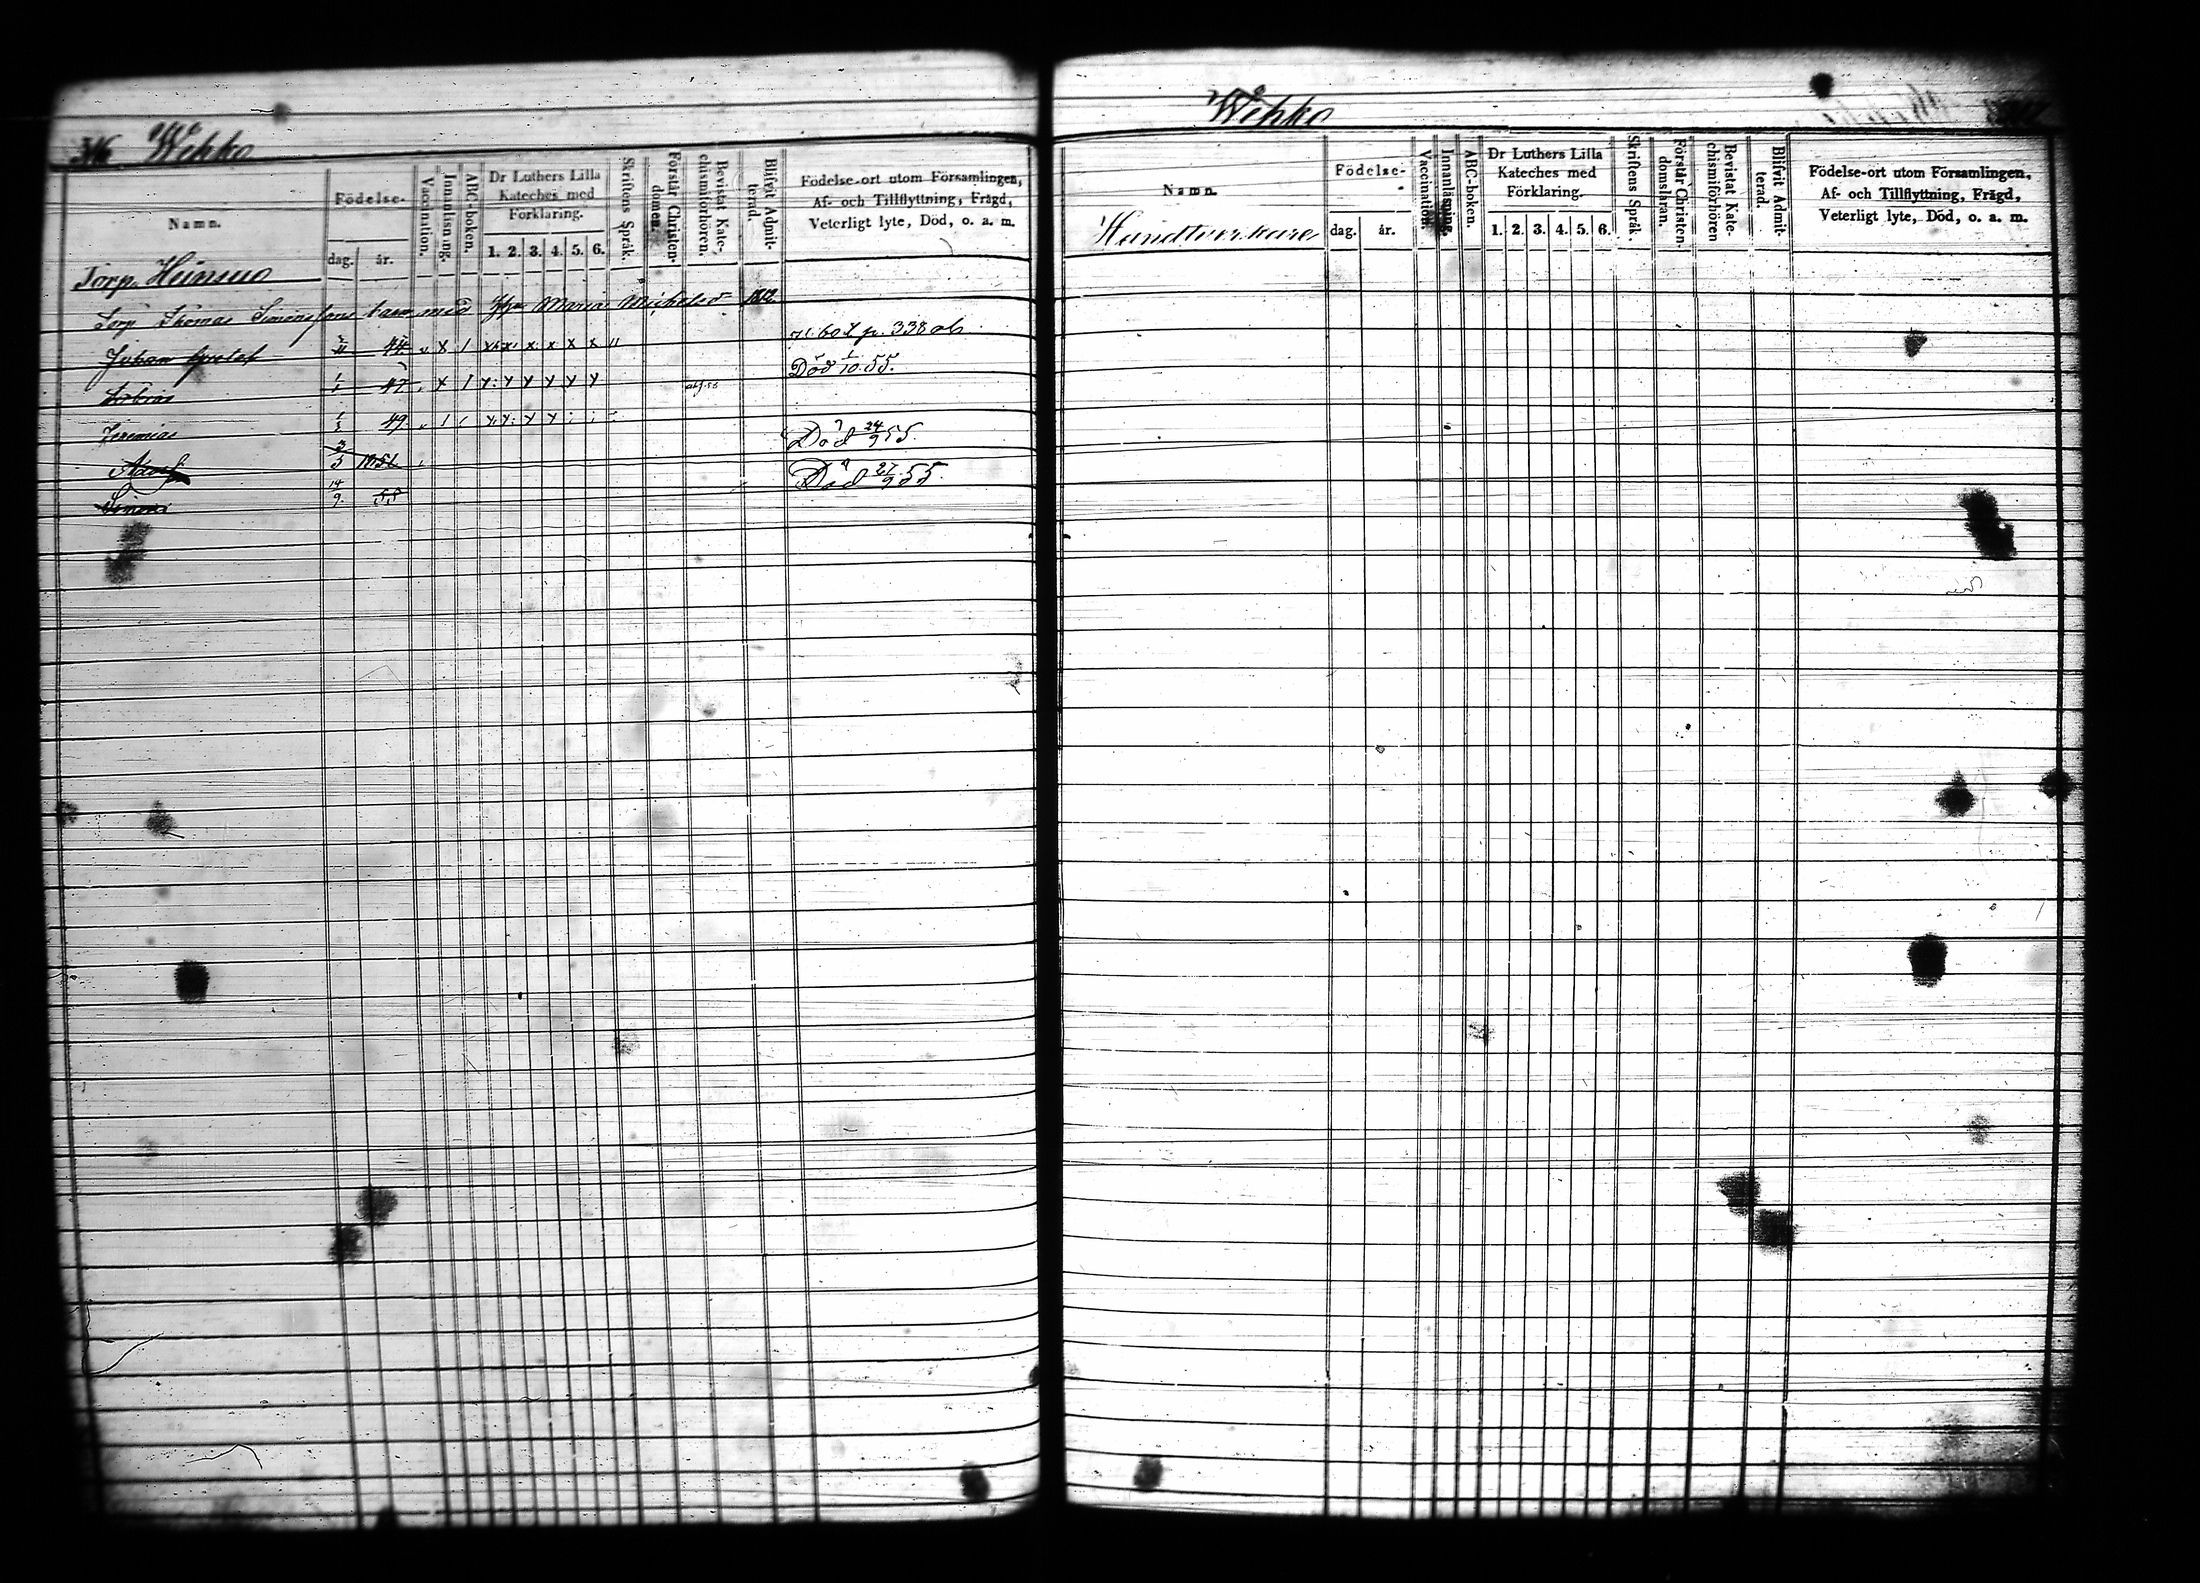 316 Wehko
Namn.
Födelse-
dag. år.
Vaccination.
Innanläsning.
ABC-boken.
Dr Luthers Lilla
Kateches med
Förklaring.
1. 2. 3. 4. 5. 6.
Skriftens Språk.
Förstår Christen-
domen.
Bevistat Kate-
chismiförhören.
Blifvit Admit-
terad.
Födelse-ort utom Församlingen,
Af- och Tillflyttning, Frägd,
Veterligt lyte, Död, o. a. m.
Torp. Heinsuo
Torp Thomas Simonssons barn med Maria
Johan 44 x 1 x x x x p. 338
Tobias 47 x 1 x x x x x Död 1/10 55.
Jeremias 49
Adolf 3/5 1851 Död 24/9 55.
Simon 14/9. 55 Död 27/9 55.
Wehko
Namn.
Födelse-
dag. år.
Vaccination.
Innanläsning.
ABC-boken.
Dr Luthers Lilla
Kateches med
Förklaring.
1. 2. 3. 4. 5. 6.
Skriftens Språk.
Förstår Christen-
domsläran.
Bevistat Kate-
chismiförhören
Blifvit Admit-
terad.
Födelse-ort utom Församlingen,
Af- och Tillflyttning, Frägd,
Veterligt lyte, Död, o. a. m.
Handtverkare